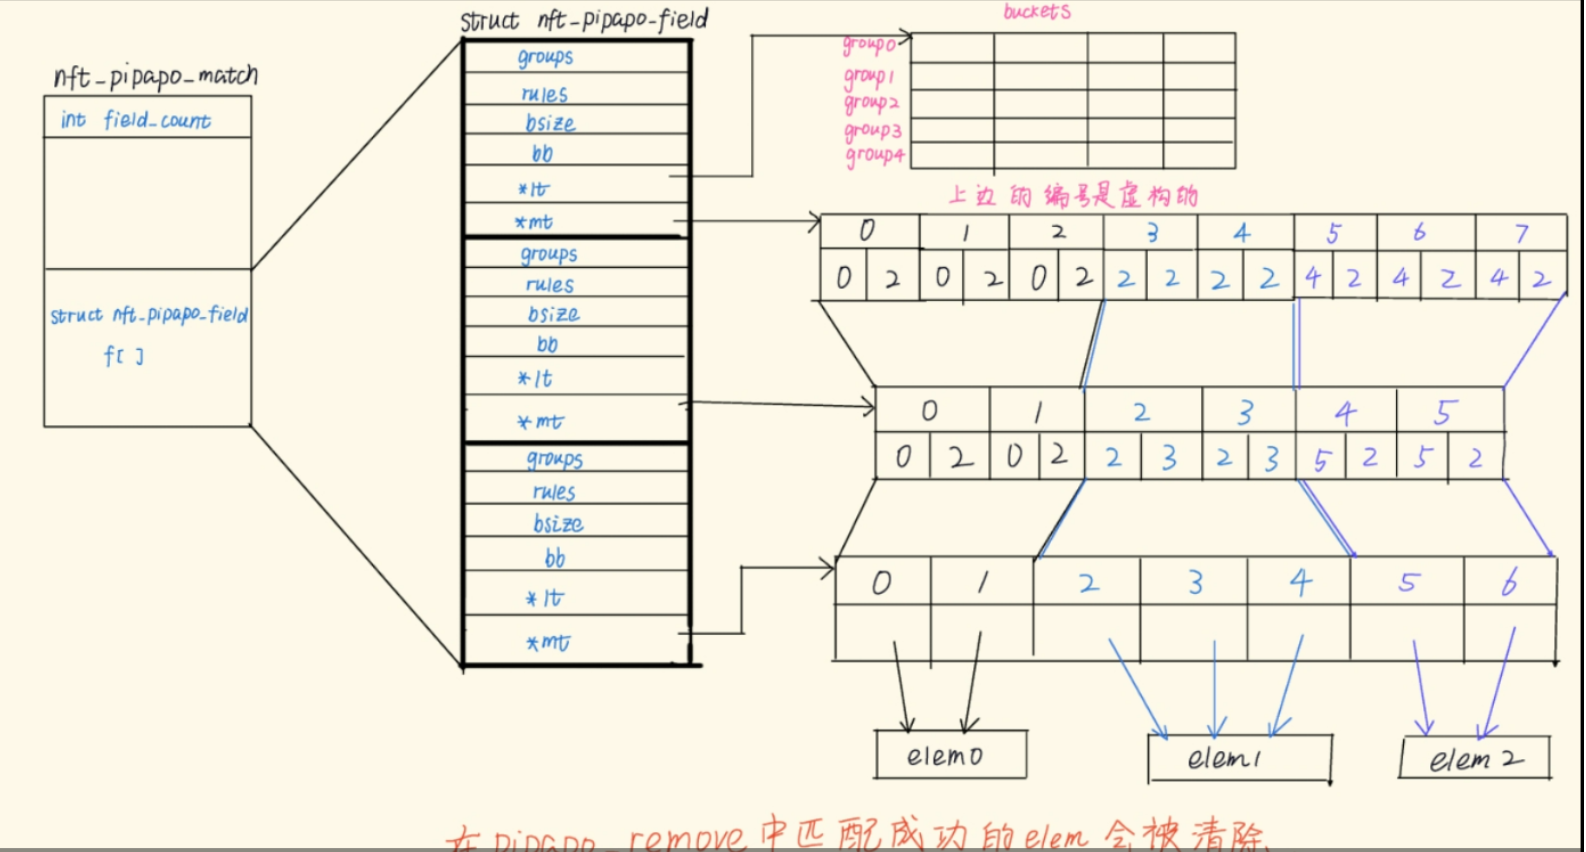 nft_pipapo_match
int field_count
struct nft_pipapo_field
f[ ]
struct nft_pipapo_field
groups
rules
bsize
bb
*lt
*mt
groups
rules
bsize
bb
*lt
*mt
groups
rules
bsize
bb
*lt
*mt
buckets
group0
group1
group2
group3
group4
上边的编号是虚构的
0 1 2 3 4 5 6 7
0 2 0 2 0 2 2 2 2 2 4 2 4 2 4 2
0 1 2 3 4 5
0 2 0 2 2 3 2 3 5 2 5 2
0 1 2 3 4 5 6
elem0 elem1 elem2
在pipapo_remove中匹配成功的elem会被清除